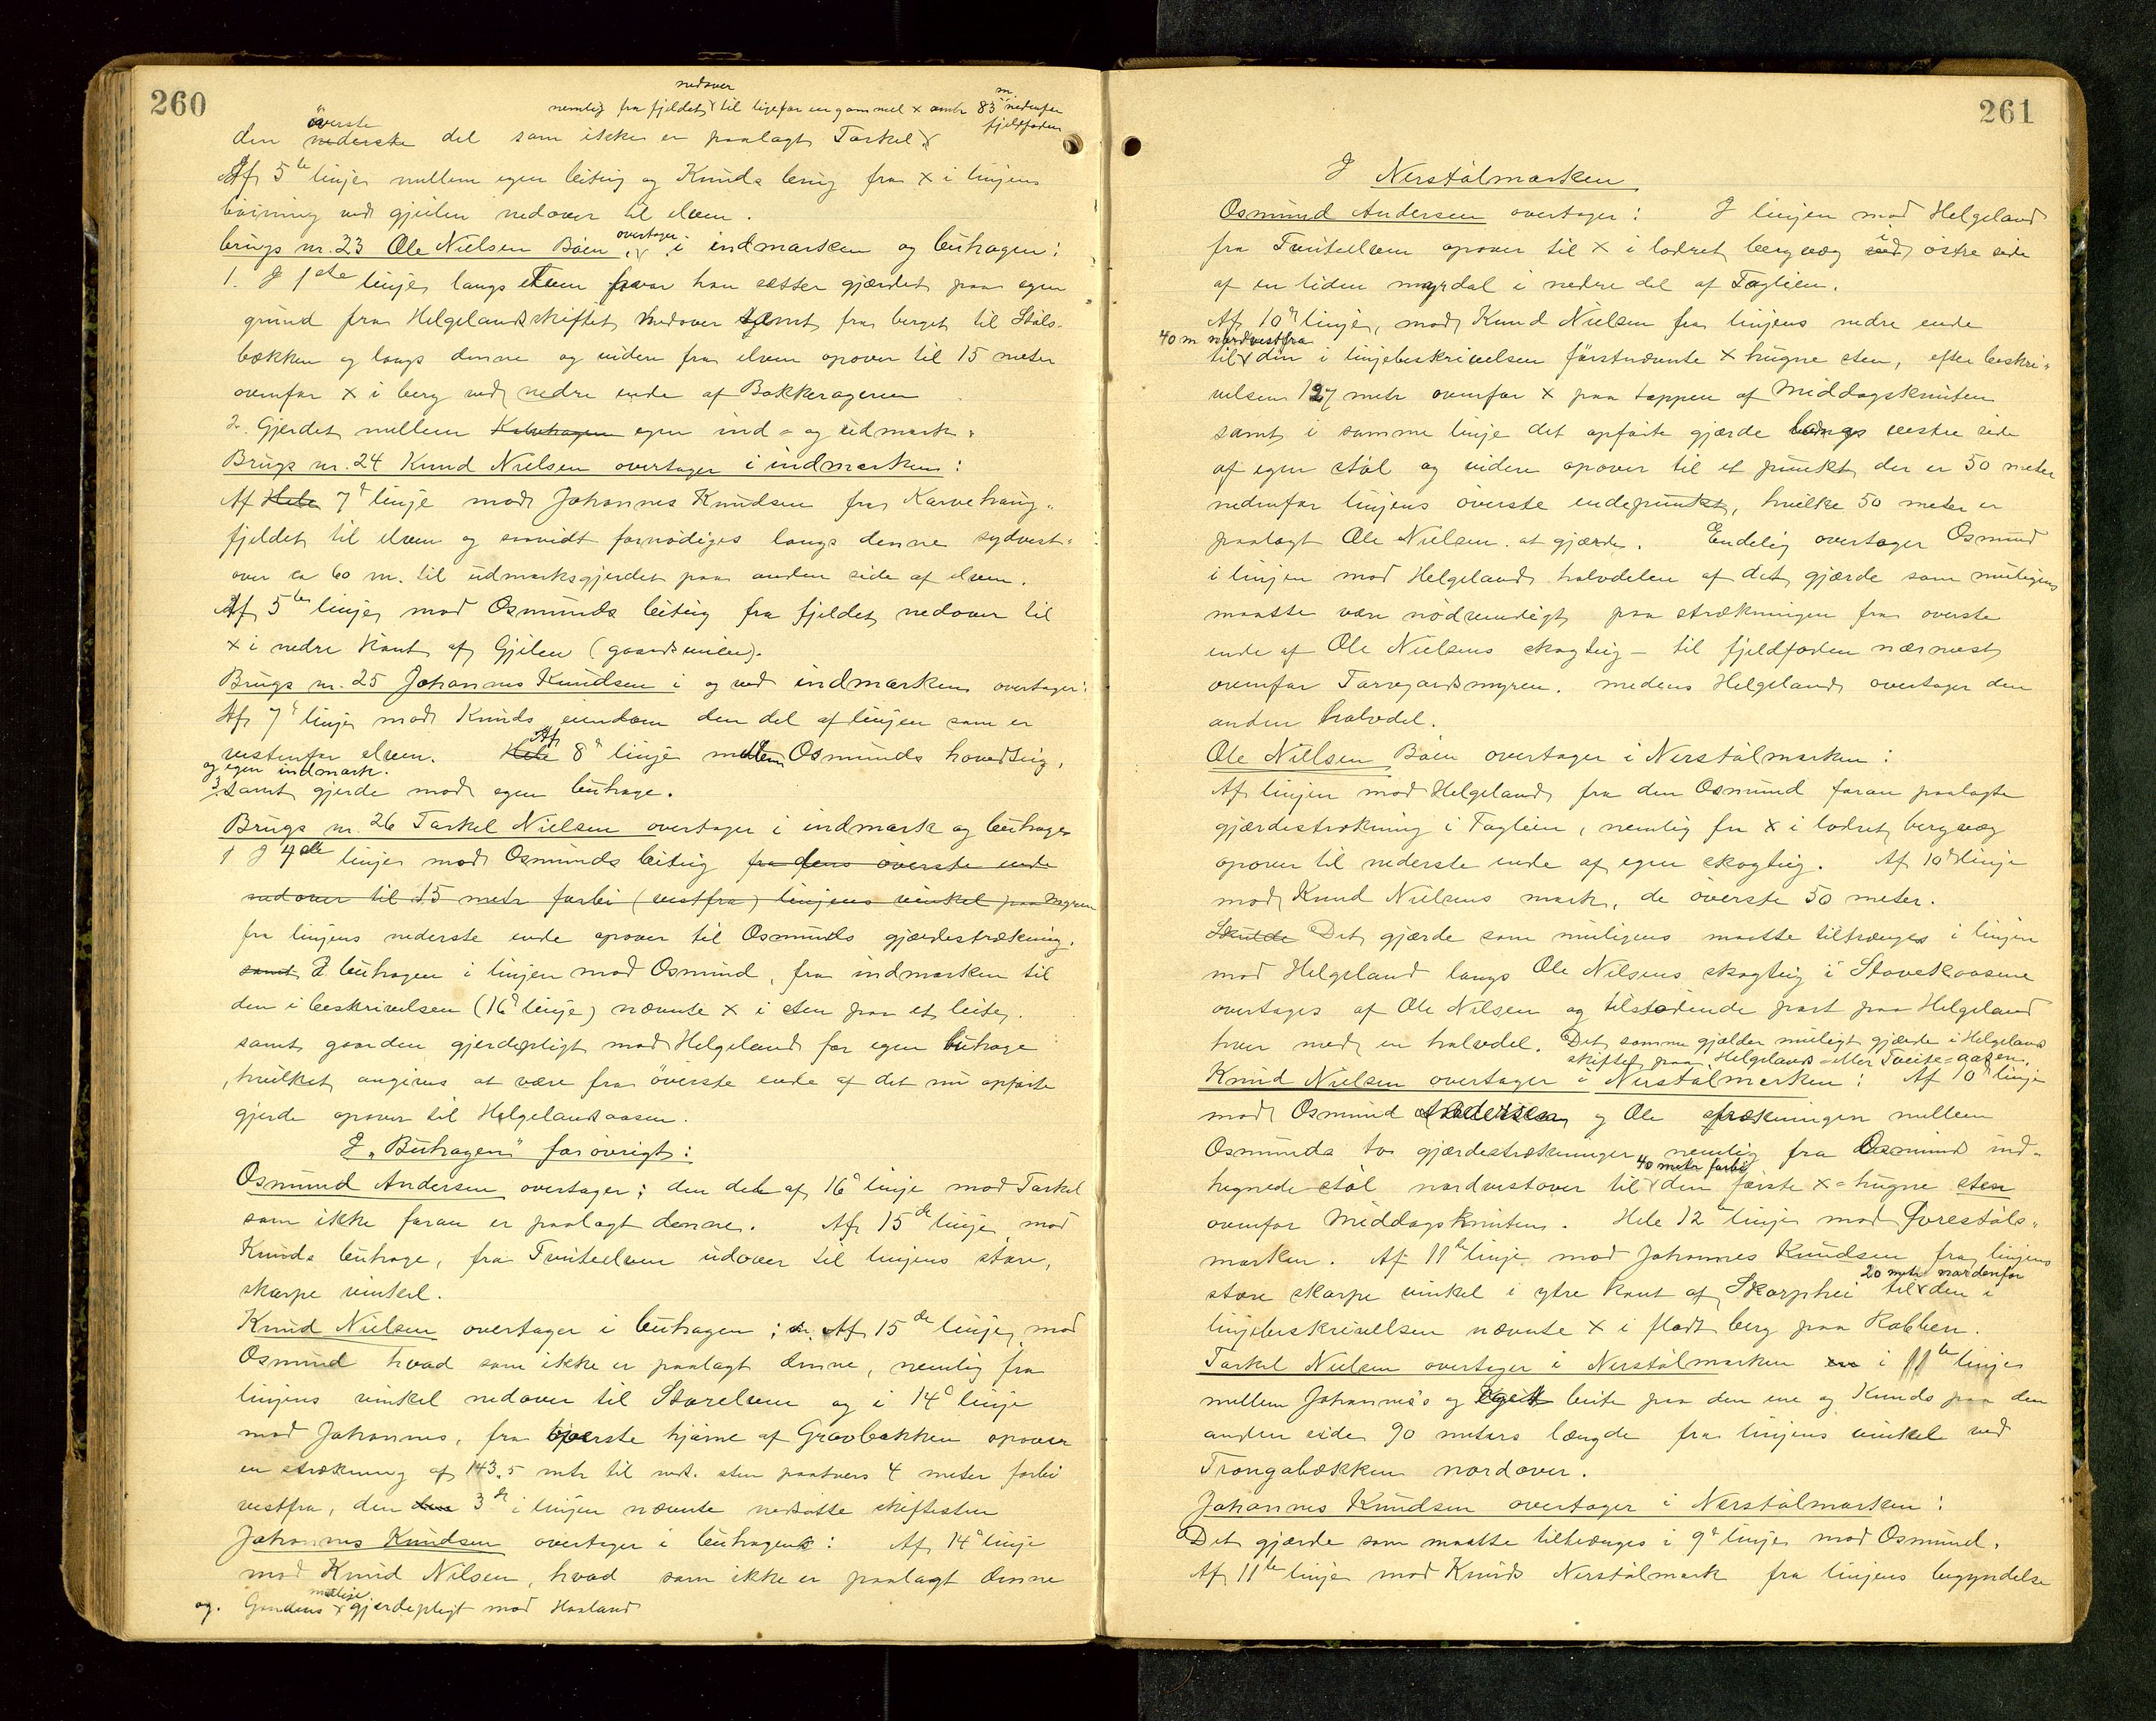 260
nedover
nemlig fra fjeldet til ligefor en gammel x omtr 83 m nedenfor
fjeldfoden
överste
den nederste del som ikke er paalagt Tarkel
Af 5te linje mellem egen beiteig og Knuds teig fra x i linjens
böining ved gjeilen nedover til elven.
brugs nr. 23 Ole Nielsen Böen overtager i indmarken og buhagen:
1. I 1ste linje langs elven hvor han setter gjærdet paa egen
grund fra Helgelandskiftet nedover samt fra berget til Stöls-
bækken og langs denne og videre fra elven opover til 15 meter
ovenfor x i berg ved nedre ende af Bakkerageren
2. Gjerdet mellem Kalvehagen egen ind- og udmark.
Brugs nr. 24 Knud Nielsen overtager i indmarken:
Af Hele 7de linje mod Johannes Knudsen fra Karvehaug-
fjeldet til elven og saavidt fornödiges langs denne sydvest-
over ca 60 m. til udmarksgjerdet paa anden side af elven.
Af 5te linje mod Osmunds beiteig fra fjeldet nedover til
x i nedre kant af Gjeilen (gaardsveien).
Brugs nr. 25 Johannes Knudsen i og ved indmarken overtager:
Af 7de linje mod Knuds eiendom den del af linjen som er
vestenfor elven. Hele Af 8de linje mellem Osmunds hovedteig,
og egen indmark.
3. Samt gjerde mod egen buhage.
Brugs nr. 26 Tarkel Nielsen overtager i indmark og buhage
1 I 4de linje mod Osmunds beiteig fra dens överste ende
nedover til 15 metr forbi (vestfra) linjens vinkel paa Myren
fra linjens nederste ende opover til Osmunds gjærdestrækning.
samt I buhagen i linjen mod Osmund, fra indmarken til
den i beskrivelsen (16de linje) nævnte x i sten paa et leite,
samt gaarden gjerdepligt mod Helgeland for egen buhage
, hvilket angives at være fra överste ende af det nu opförte
gjerde opover til Helgelandsaasen.
I "Buhagen" forövrigt:
Osmund Andersen overtager: den del af 16de linje mod Tarkel
som ikke foran er paalagt denne. Af 15de linje mod
Knuds buhage, fra Tveiteelven udover til linjens store,
skarpe vinkel.
Knud Nielsen overtager i buhagen: Af 15de linje mod
Osmund hvad som ikke er paalagt denne, nemlig fra
linjens vinkel nedover til Storelven og i 14de linje
mod Johannes, fra överste hjörne af Gravbakken opover
en strækning af 143,5 mtr til nedsat sten paatvers 4 meter forbi
vestfra, den 3de i linjen nævnte nedsatte skiftesten
Johannes Knudsen overtager i buhagen: Af 14de linje
mod Knud Nilsen, hvad som ikke er paalagt denne
og. Gaardens mulige gjerdepligt mod Haaland
261
I Nerstölmarken
Osmund Andersen overtager: I linjen mod Helgeland
fra Tveiteelven opover til x i lodret bergvæg i östre side
af en liden myrdal i nedre del af Faglien.
Af 10de linje, mod Knud Nielsen fra linjens nedre ende
40 m nordvestfra
til den i linjebeskrivelsen förstnævnte x hugne sten, efter beskri-
velsen 127 metr ovenfor x paa toppen af Middagsknuten
samt i samme linje det opförte gjærde langs vestre side
af egen stöl og videre opover til et punkt der er 50 meter
nedenfor linjens överste endepunkt, hvilke 50 meter er
paalagt Ole Nielsen at gjærde. Endelig overtager Osmund
i linjen mod Helgeland halvdelen af det gjærde som muligens
maatte være nödvendigt paa strækningen fra överste
ende af Ole Nielsens skogteig – til fjeldfoden nærmest
ovenfor Torvgardsmyren. medens Helgeland overtager den
anden halvdel.
Ole Nielsen Böen overtager i Nerstölmarken:
Af linjen mod Helgeland fra den Osmund foran paalagte
gjærdestrækning i Faglien, nemlig fra x i lodret bergvæg
opover til nederste ende af egen skogteig. Af 10de linje
mod Knud Nielsens mark, de överste 50 meter.
Skulde Det gjærde som muligens maatte tiltrænges i linjen
mod Helgeland langs Ole Nilsens skogteig i Stovekaasene
overtages af Ole Nilsen og tilstödende part paa Helgeland
hver med en halvdel. Det samme gjælder muligt gjærde i Helgelands
skiftet paa Helgelands- eller Tveite-aasen.
Knud Nielsen overtager i Nerstölmarken: Af 10de linje
mod Osmund Andersen og Ole strækningen mellem
Osmunds to gjærdestrækninger nemlig fra Osmunds ind-
40 metr forbi
hegnede stöl nordvestover til den förste x-hugne sten
ovenfor Middagsknuten. Hele 12te linje mod Överstöls-
marken. Af 11te linje mod Johannes Knudsen fra linjens
20 metr nordenfor
store skarpe vinkel i ytre kant af Skarphei til den i
linjebeskrivelsen nævnte x i fladt berg paa Rabben.
Tarkel Nielsen overtager i Nerstölmarken i 11te linje
mellem Johannes's og eget beite paa den ene og Knuds paa den
anden side 90 meters længde fra linjens vinkel ved
Trangabækken nordover.
Johannes Knudsen overtager i Nerstölmarken:
Det gjærde som maatte tiltrænges i 9de linje mod Osmund.
Af 11te linje mod Knuds Nerstölmark fra linjens begyndelse